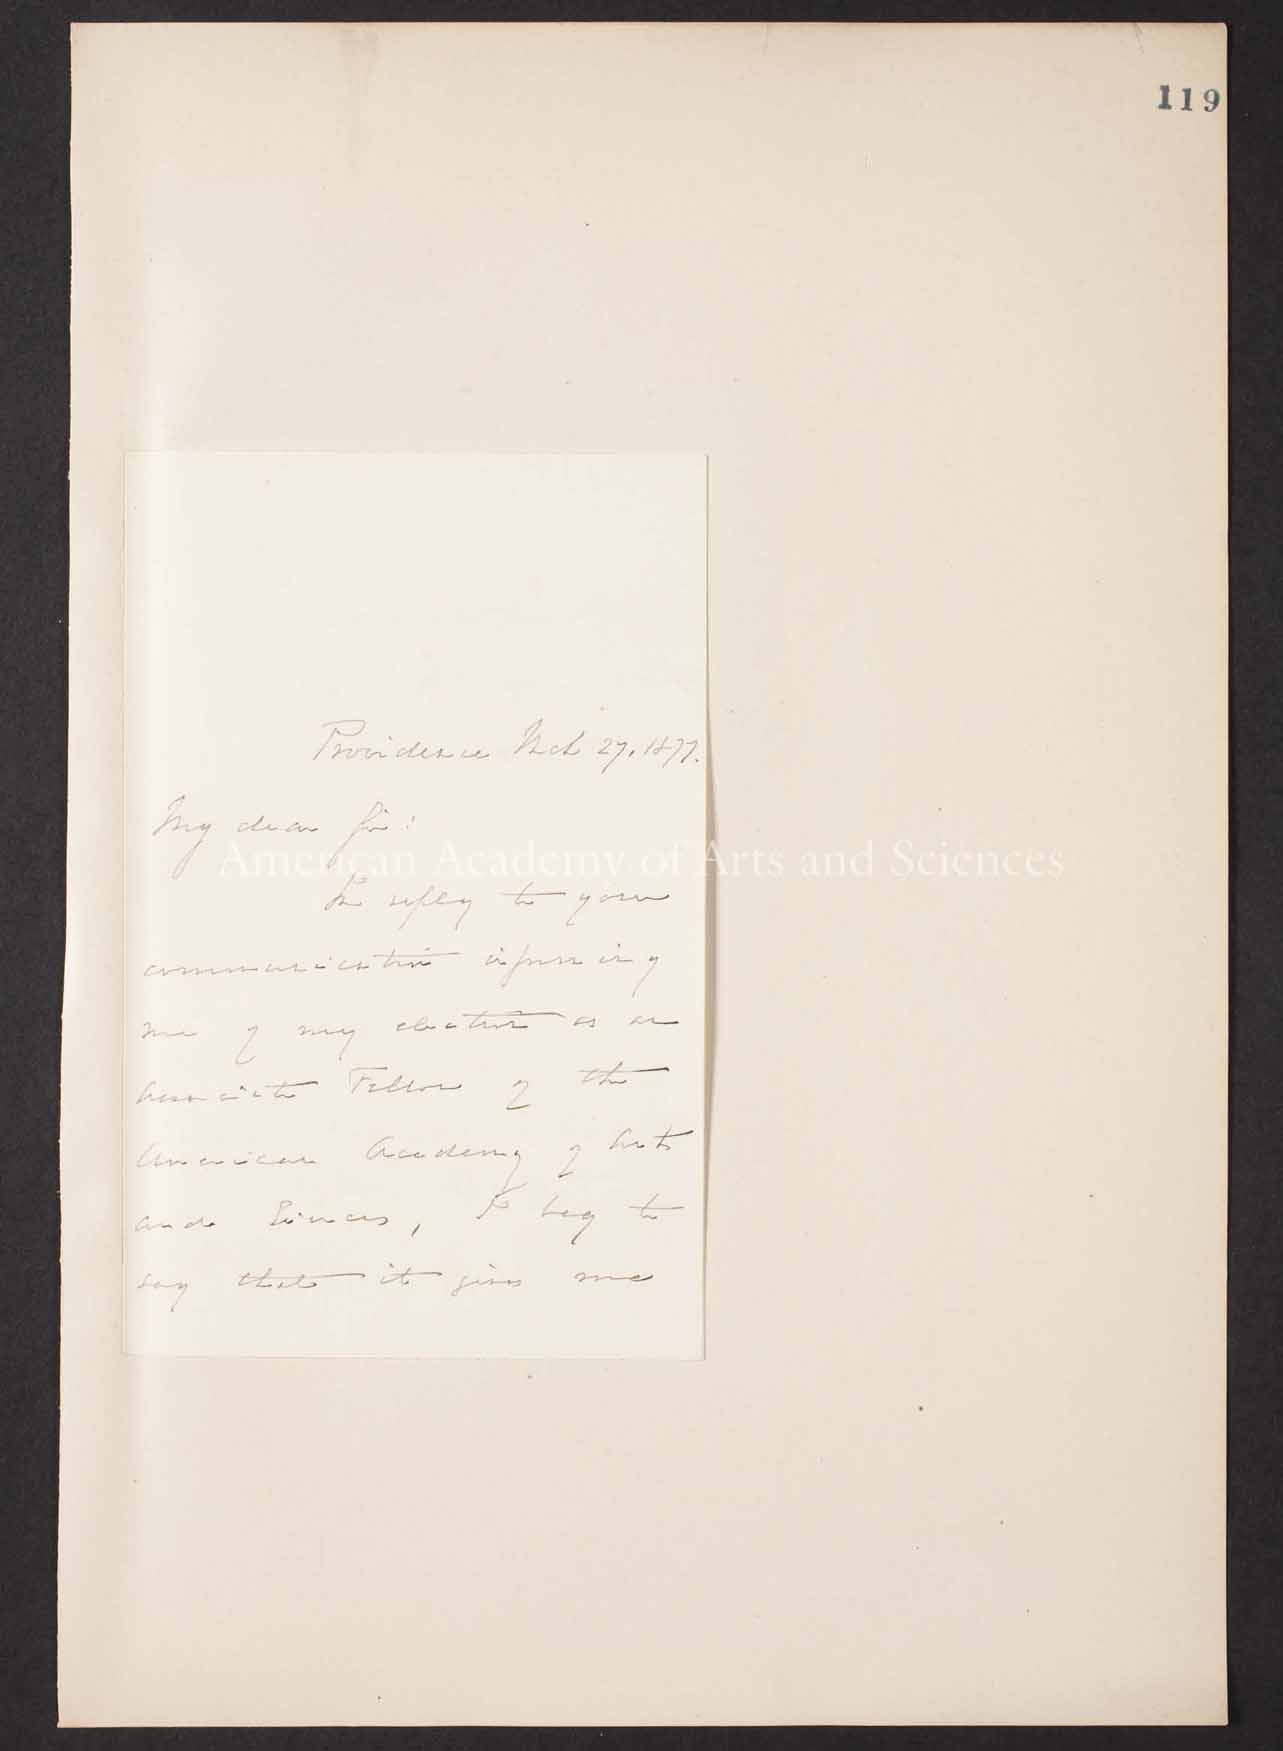 119
Providence Mch 27, 1877.
My dear Sir:
American Academy of Arts and Sciences
In reply to your
communication informing
me of my election as an
Associate Fellow of the
American Academy of Arts
and Sciences, I beg to
say that it gives me